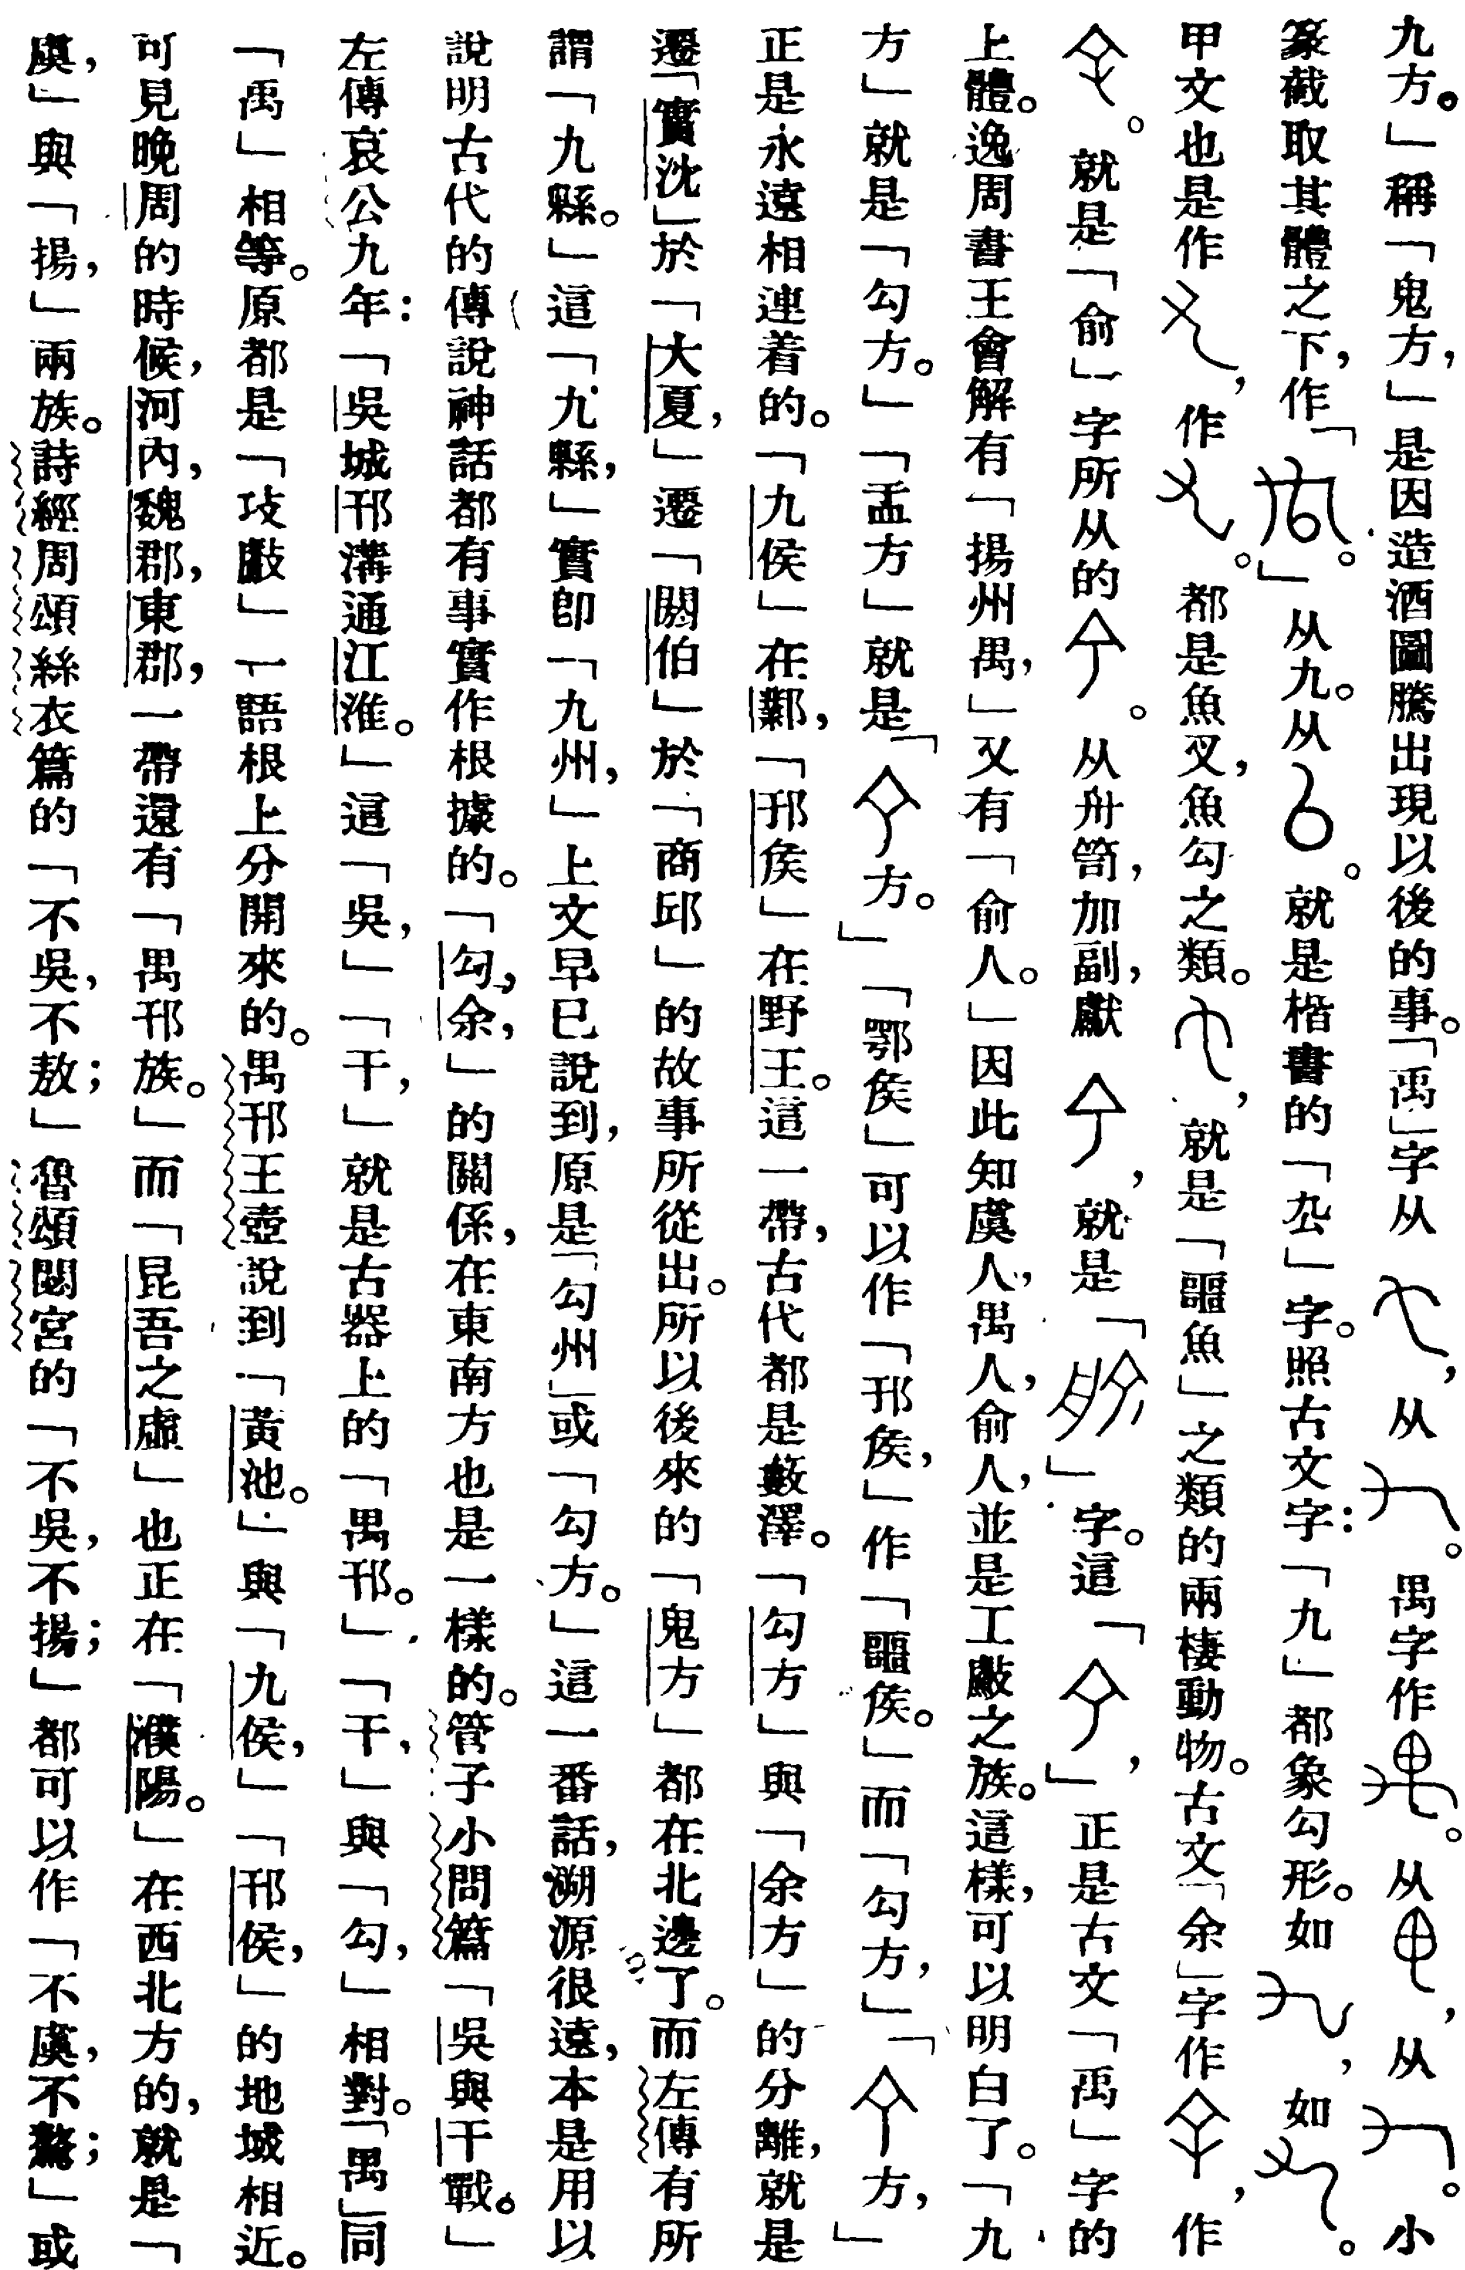 九方。」稱「鬼方，」是因造酒圖騰出現以後的事。「禹」字从，从。禺字作。从，从。小
篆截取其體之下，作「。」从九。从。就是楷書的「厹」字。照古文字：「九」都象勾形。如，如。
甲文也是作，作。都是魚叉，魚勾之類。，就是「鼉魚」之類的兩棲動物。古文「余」字作，作
。就是「俞」字所从的。从舟笥，加副，獻，就是「」字。這「，」正是古文「禹」字的
上體。逸周書王會解有「揚州禺，」又有「俞人。」因此知虞人，禺人，俞人，並是工䱷之族。這樣，可以明白了。「九
方」就是「勾方。」「盂方」就是「方。」「鄂侯」可以作「邘侯，」作「鼉侯。」而「勾方，」「方，」
正是永遠相連着的。「九侯」在鄴，「邘侯」在野王。這一帶，古代都是藪澤。「勾方」與「余方」的分離，就是
遷「實沈」於「大夏，」遷「閼伯」於「商邱」的故事所從出。所以後來的「鬼方」都在北邊了。而左傳有所
謂「九縣。」這「九縣，」實卽「九州，」上文早已說到，原是「勾州」或「勾方。」這一番話，溯源很遠，本是用以
說明古代的傳說神話都有事實作根據的。「勾，余，」的關係，在東南方也是一樣的。管子小問篇「吳與干戰。」
左傳哀公九年：「吳城邗溝通江淮。」這「吳，」「干，」就是古器上的「禺邗。」「干，」與「勾，」相對。「禺」同
「禹」相等。原都是「攻䱷」一語根上分開來的。禺邗王壺說到「黃池。」與「九侯，」「邘侯，」的地域相近。
可見晚周的時候，河內，魏郡，東郡，一帶還有「禺邗族。」而「昆吾之虛」也正在「濮陽。」在西北方的，就是「
虞，」與「揚，」兩族。詩經周頌絲衣篇的「不吳，不敖；」魯頌閟宮的「不吳，不揚；」都可以作「不虞，不驁；」或